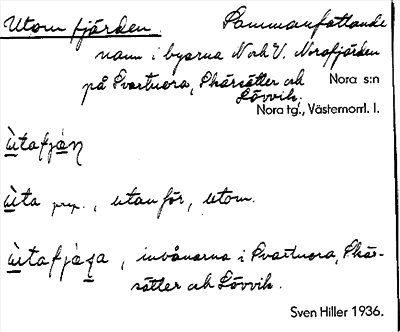 Utom fjärden. Sammanfattande
namn i byarna N och V. Norafjärden
på Svartnora, Skärsätter och Nora s:n
Lövvik. Nora tg., Västernorrl. l.
ùtafjàn
ùta prep., utanför, utom.
ùtafjàga, invånarna i Svartnora, Skär-
sätter och Lövvik.
Sven Hiller 1936.